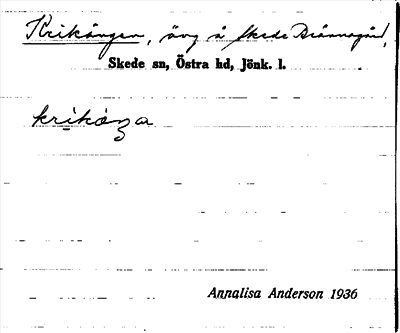 Krikången, äng å Skede Diännagård,
Skede sn, Östra hd, Jönk. l.
Annalisa Anderson 1936